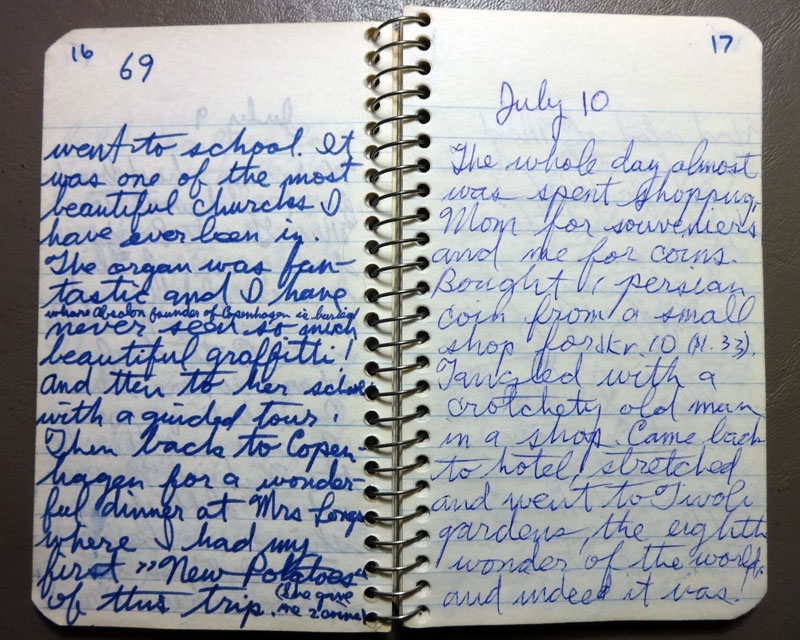 16
69
went to school. It
was one of the most
beautiful churchs I
have ever been in.
The organ was fan-
tastic and I have
where Absalon founder of Copenhagen is buried
never seen so much
beautiful graffitti!
and then to her school
with a guided tour.
Then back to Copen-
hagen for a wonder-
ful dinner at Mrs Longs
where I had my
first »New Potatoes"
of this trip. (she gave
me 2 some)
17
July 10
The whole day almost
was spent shopping,
Mom for souveniers
and me for coins.
Bought 1 persian
coin from a small
shop for dkr. 10 (\$1.33).
Tangled with a
crotchety old man
in a shop. Came back
to hotel, stretched
and went to Tivoli
gardens, the eighth
wonder of the world,
and indeed it was.